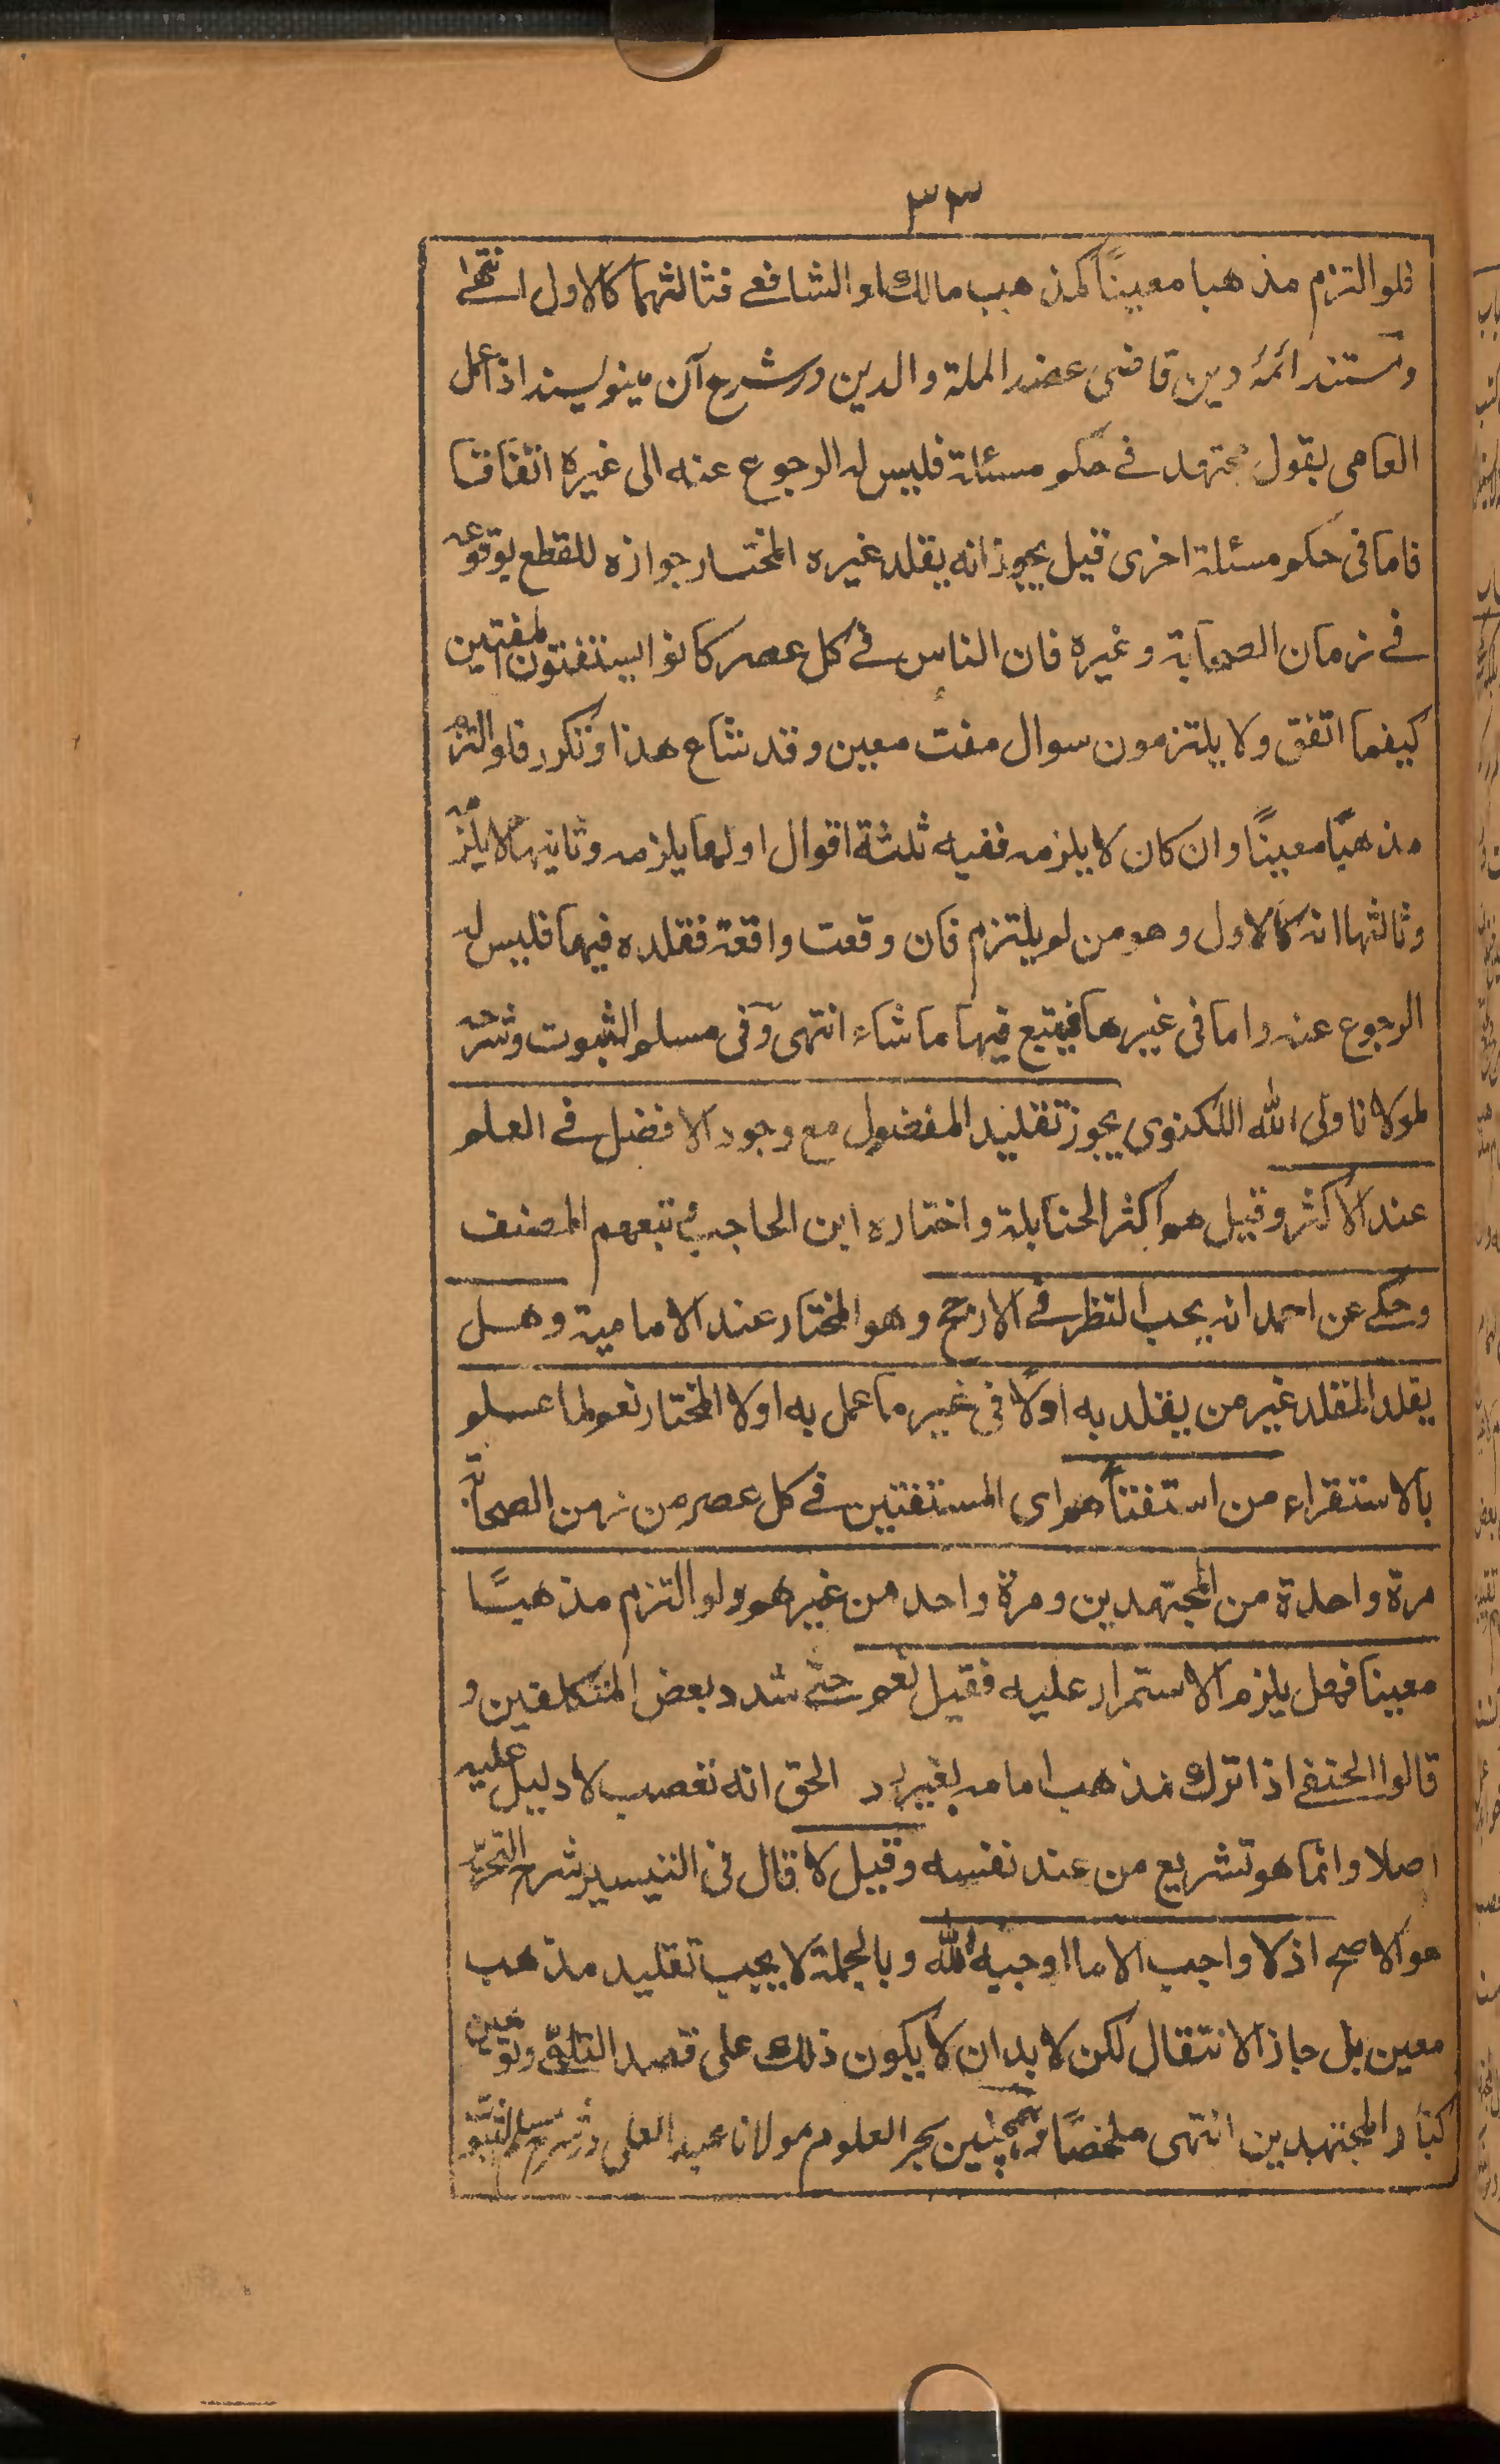 ٣٣
فلو التزم مذهبا معيناً كمذهب مالك او الشافعے فثالثهما كالاول انتهٰے
ومستند ائمۂ دين قاضی عضد الملة والدين در شرح آن مينويسند اذا عمل
العامی بقول مجتهد فے حكم مسئلة فليس له الرجوع عنه الی غيره اتفاقا
فاما فی حكم مسئلة اخری فيل يجوز انه يقلد غيره المختار جوازه للقطع بوقوعه
فے زمان الصحابة وغيره فان الناس فے كل عصر كانوا يستفتون المفتيين
كيفما اتفق ولا يلتزمون سوال مفت معين وقد شاع هذا وتكرر فلو التزم
مذهبًا معينًا وان كان لا يلزمه ففيه ثلثة اقوال اولها يلزمه وثانيها لا يلزمه
وثالثها انه كالاول وهو من لم يلتزم فان وقعت واقعة فقلده فيها فليس له
الرجوع عنه واما فی غيرها فيتبع فيها ما شاء انتهی وفی مسلم الثبوت وشرحه
لمولانا ولی الله اللكنوی يجوز تقليد المفضول مع وجود الافضل فے العلم
عند الاكثر وقيل هم اكثر الحنابلة واختاره ابن الحاجب و تبعهم المصنف
وحكے عن احمد انه يجب النظر فے الارجح وهو المختار عند الامامية وهل
يقلد المقلد غير من يقلد به اولاً فی غير ما عمل به اولا المختار نعم لما علم
بالاستقراء من استفتاءهم ای المستفتين فے كل عصر من زمن الصحابة
مرة واحدة من المجتهدين ومرة واحد من غيرهم ولو التزم مذهبًا
معينا فهل يلزم الاستمرار عليه فقيل نعم حتے شدد بعض المتكلفين و
قالوا الحنفے اذا ترك مذهب امامه بغير لد الحق انه تعصب لا دليل عليه
اصلا وانما هو تشريع من عند نفسه وقيل لا قال فی التيسير شرح التحرير
هو الاصح اذ لا واجب الا ما اوجبه الله وبالجملة لا يجب تقليد مذهب
معين بل جاز الانتقال لكن لا بد ان لا يكون ذلك علی قصد التلهی وتوهين
كبار المجتهدين انتهی ملخصًا وهمچنين بحر العلوم مولانا عبد العلی در شرح مسلم الثبوت